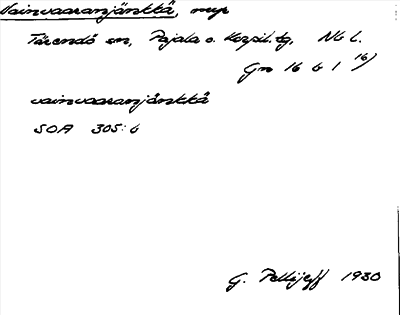 Vainvaaranjänkkä, myr
Tärendö sn, Pajala o. Korpil. tg, Nb l.
Gn 16 b 1 16)
vainvaaranjänkkä
SOA 305:6
G. Pellijeff 1930